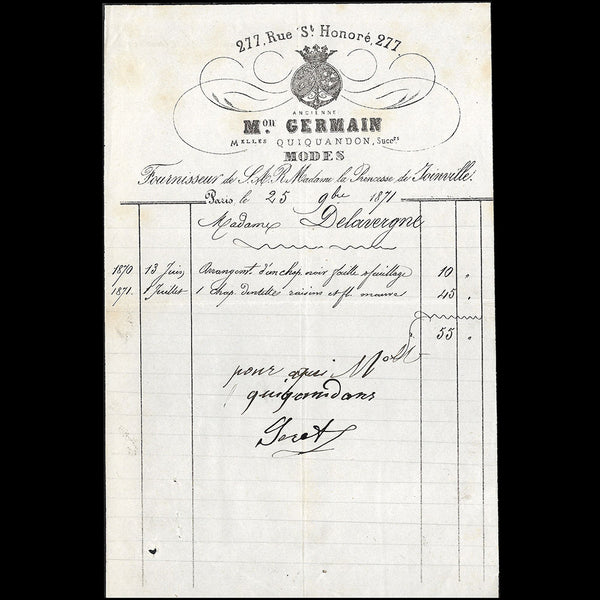 277, Rue St Honoré, 277
ANCIENNE
Mon GERMAIN
Melles QUIQUANDON, Succrs
MODES
Fournisseur de S.A.R. Madame la Princesse de Joinville.
Paris le 25 9bre 1871
Madame Delavergne
1870 13 Juin Arrangent. d'un chap. noir faille & feuillage 10 "
1871. 1 Juillet 1 Chap. dentelle raisins et fl. mauve 45 "
55 "
pour
quiqandans